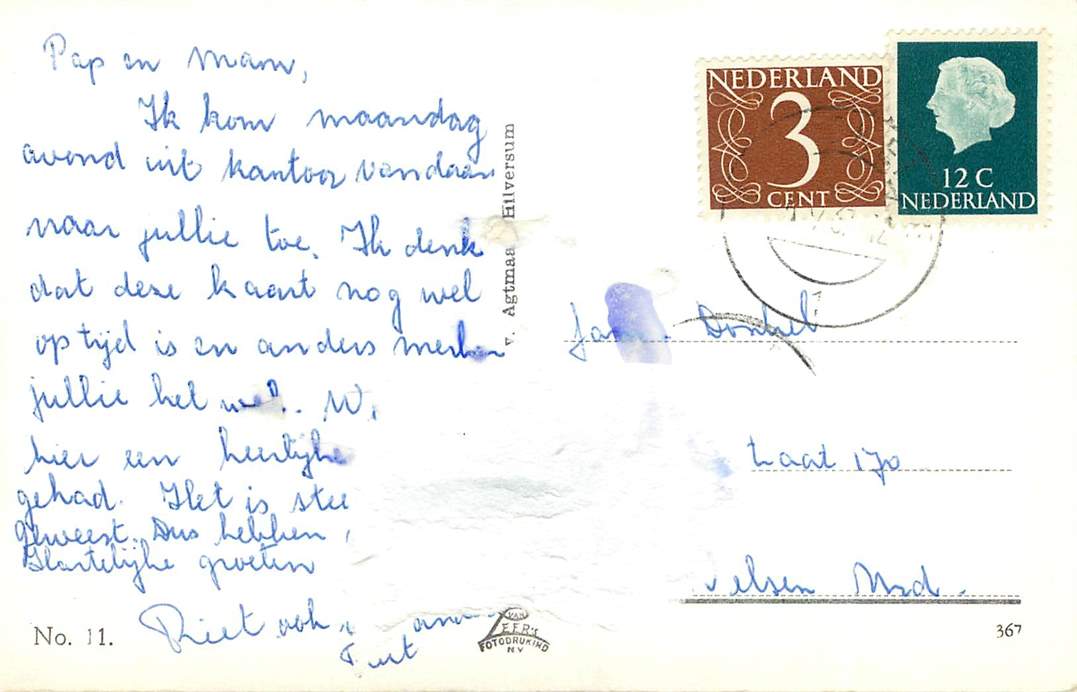 Pap en Mam,
Ik kom maandag
avond uit kantoor vandaan
naar jullie toe. Ik denk
dat deze kaart nog wel
op tijd is en anders merken
jullie het wel. W
hier een heerlijke
gehad. Het is
geweest. Dus hebben
Hartelijke groeten
Riet ook
No. 11.
v. Agtmaa Hilversum
NEDERLAND
3
CENT
12 C
NEDERLAND
Donkel
traat 170
elsen Nrd.
VAN
LEER'S
FOTODRUKIND
N.V.
367